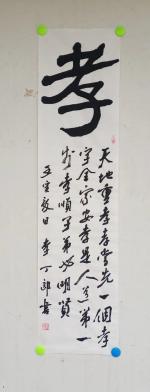 孝
天地重孝孝当先一個孝
字全家安孝是人道第一
步孝順子弟必明賢
李丁郎書